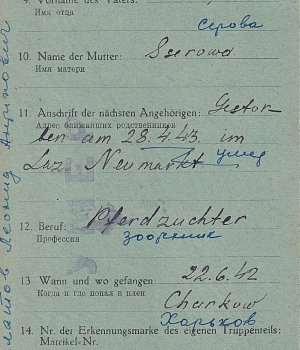 9. Vorname des Vaters:
Имя отца
Серова
10. Name der Mutter: Sserowa
Имя матери
11. Anschrift der nächsten Angehörigen: Gestor
Адрес ближайших родственников
ben am 28.4.43. im
Laz Neumarkt умер
12. Beruf: Pferdzuchter
Профессия
13 Wann und wo gefangen: 22.6.42
Когда и где попал в плен
Charkow
Харьков
14. Nr. der Erkennungsmarke des eigenen Truppenteils:
Matrikel-Nr.
Леонид